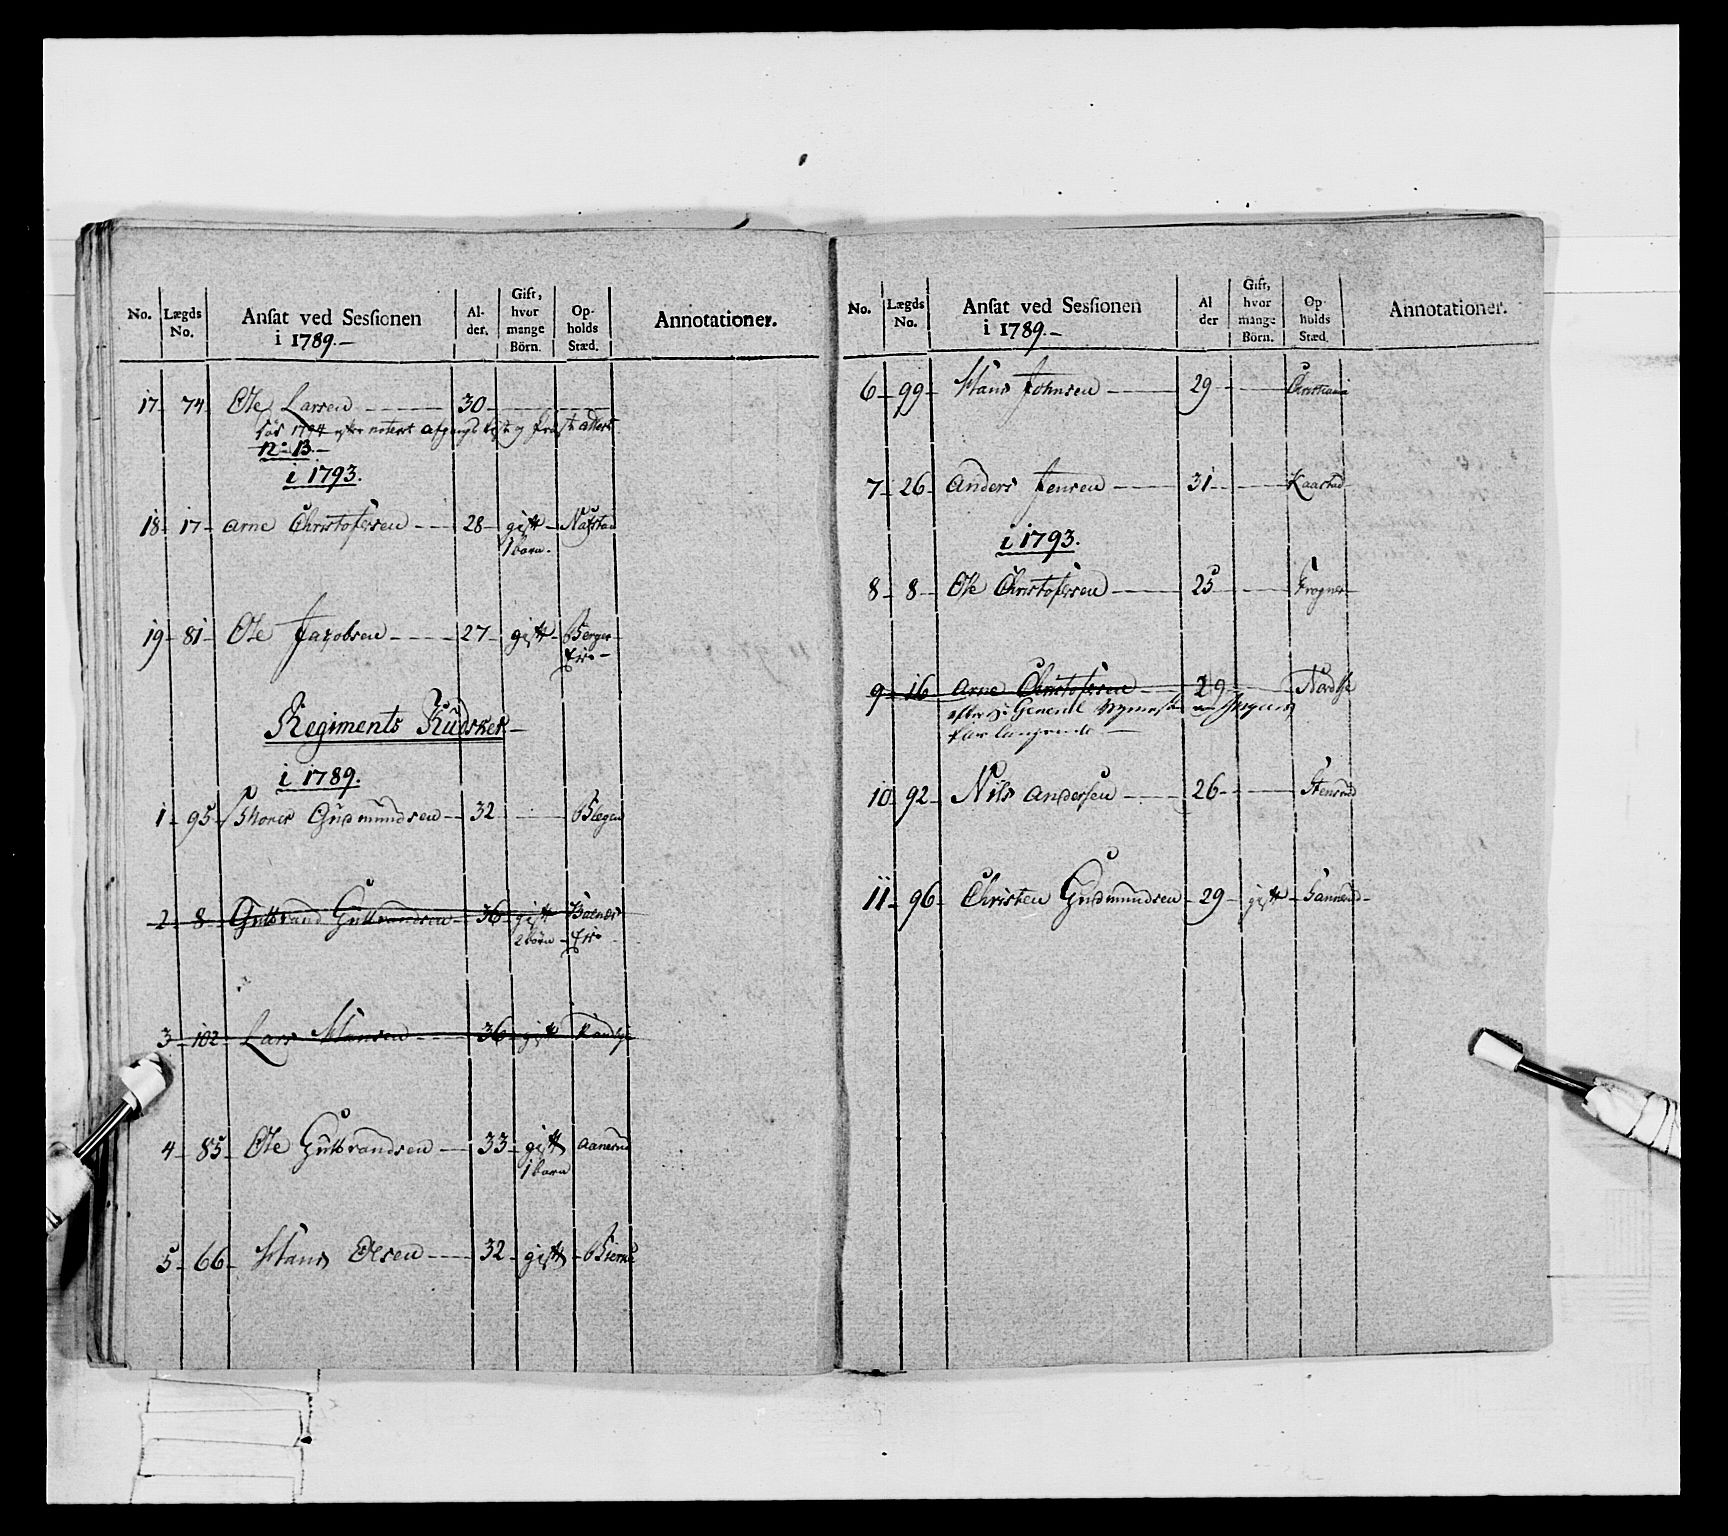 No. Lægds No. Ansat ved Sessionen i 1789.- Al- der. Gift, hvor mange Börn. Op- holds Stæd. Annotationer.
17 - 74 Ole Larsen 30
død 1794
No 13.-
i 1793.
18 - 17 - Arne Christofersen 28 gift Nafstad
1 barn.
19 - 81 - Ole Jacobsen 27 gift Berger
Eie -
Regiments Kudsker
i 1789.
1 - 95 Gudmundsen 32
2 - 8 Gulbrand Gulbrandsen 36 gift
2 börn Eie
3 - 102 Lars Hansen 36 gift
4 - 85 Ole Gulbrandsen 33 gift Aanerud
1 barn
5 - 66 Hans Olsen 32 gift
No. Lægds No. Ansat ved Sessionen i 1789.- Al der Gift, hvor mange Börn. Op- holds Stæd. Annotationer.
6 - 99 Hans Johnsen 29 Christiania
7 - 26 Anders Jensen 31 Kaarstad
i 1793.
8 - 8 - Ole Christofersen 25 Frogner
9 - 16 Arne Christofersen 29
General
10 - 92 Nils Andersen 26 Stensrud
11 - 96 Christen Gudmundsen 29 gift